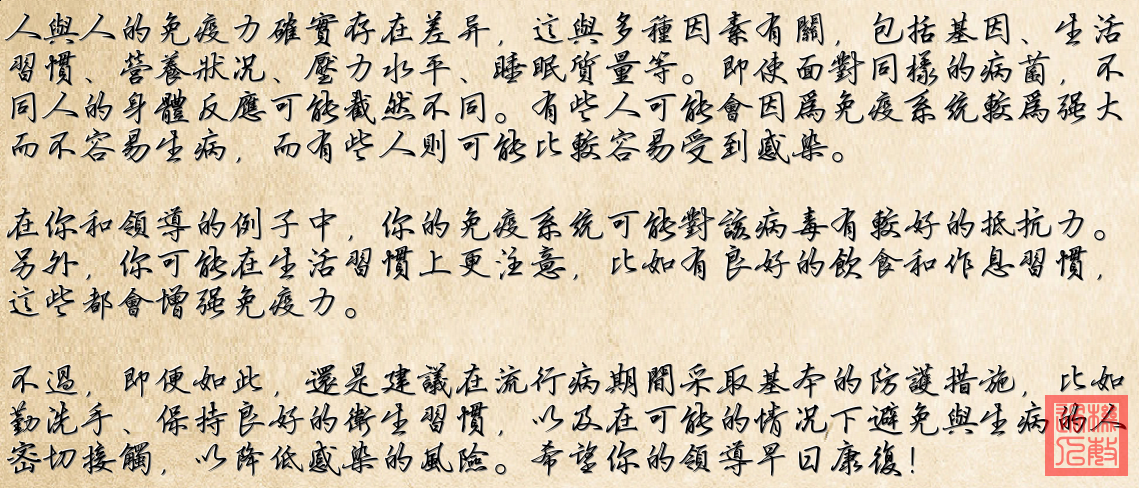 人與人的免疫力確實存在差异，這與多種因素有關，包括基因、生活
習慣、營養狀况、壓力水平、睡眠質量等。即使面對同樣的病菌，不
同人的身體反應可能截然不同。有些人可能會因爲免疫系統較爲强大
而不容易生病，而有些人則可能比較容易受到感染。
在你和領導的例子中，你的免疫系統可能對該病毒有較好的抵抗力。
另外，你可能在生活習慣上更注意，比如有良好的飲食和作息習慣，
這些都會增强免疫力。
不過，即便如此，還是建議在流行病期間采取基本的防護措施，比如
勤洗手、保持良好的衛生習慣，以及在可能的情况下避免與生病的人
密切接觸，以降低感染的風險。希望你的領導早日康復！